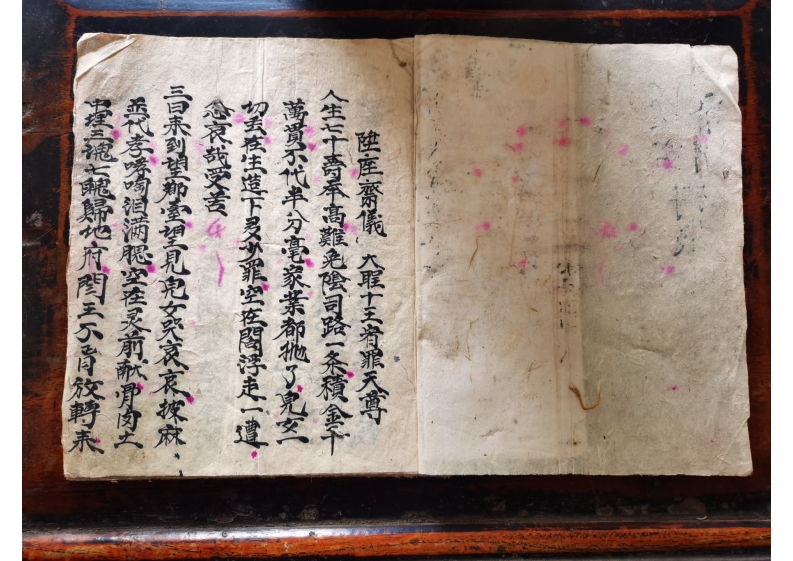 陞座齋儀 大聖十王宥罪天尊
人生七十壽年高難免陰司路一条積金千
萬貫不代半分毫家業都拋了兒女一
切丢在生造下多少罪空在閻浮走一遭
念哀哉受苦
三日来到望鄉臺望見兒女哭哀哀披麻
帶孝淚滿腮空在灵前献骨肉土
中埋三魂七魄歸地府閻王不肯放轉来